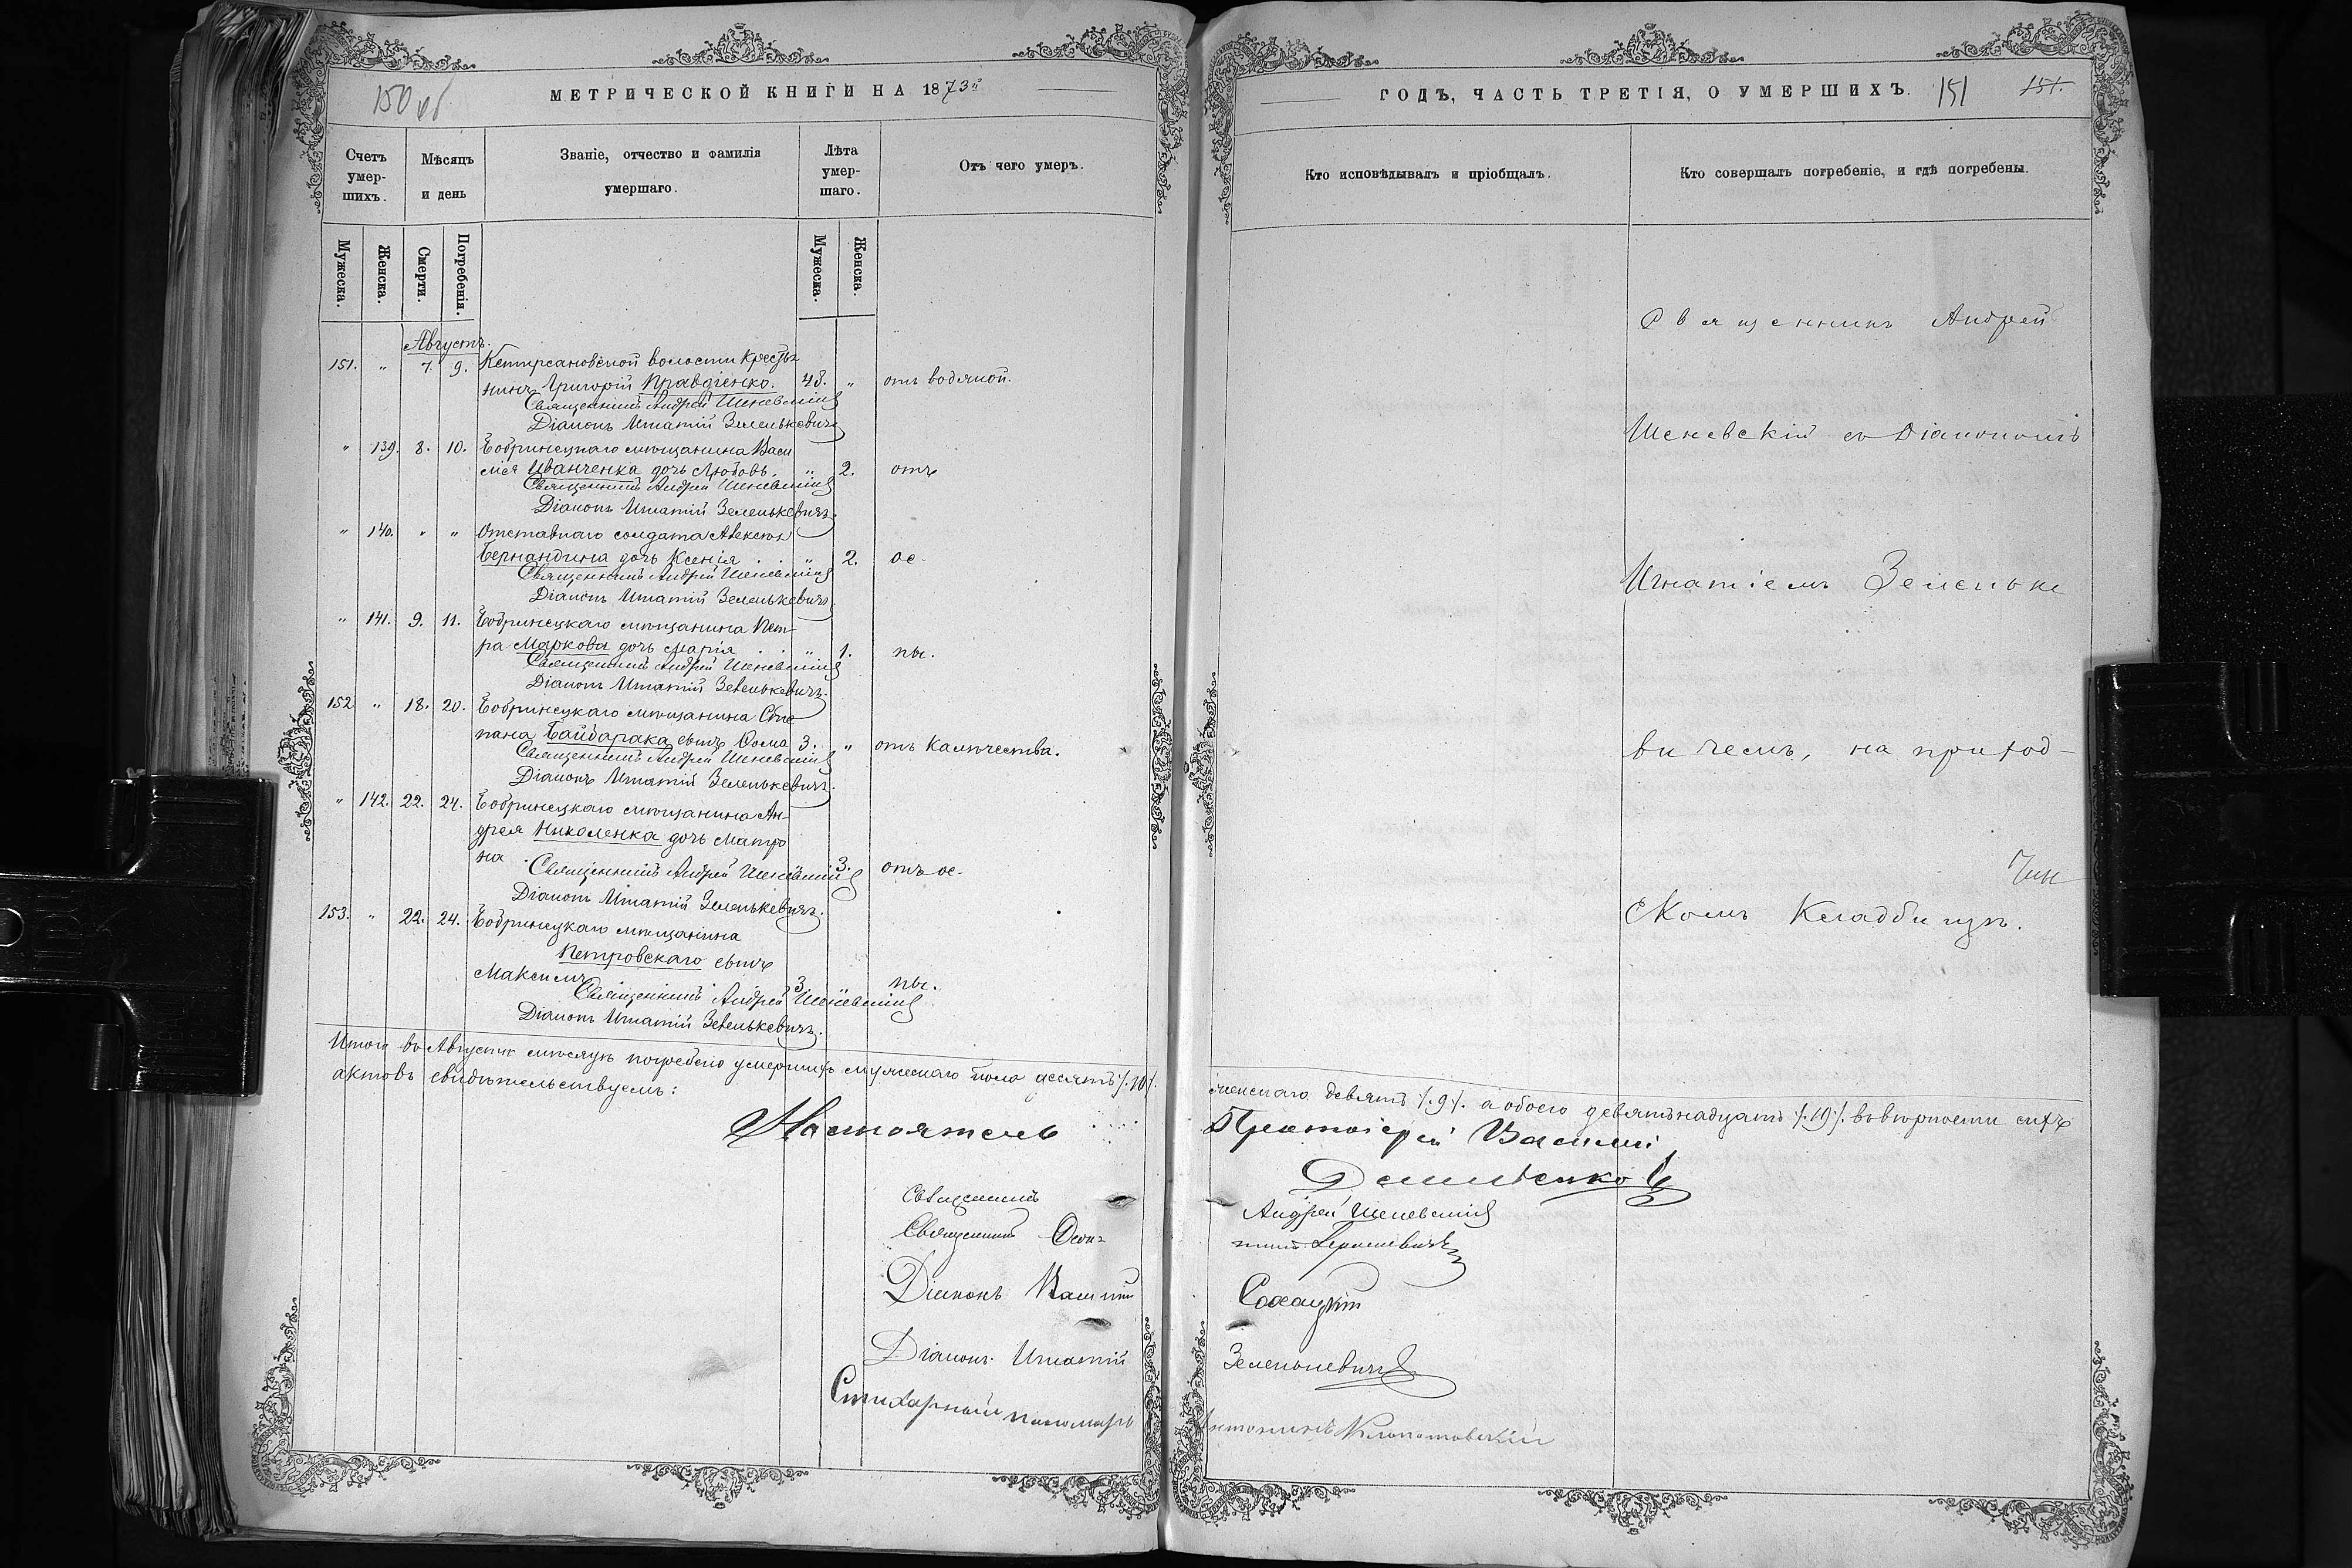 150 об
МЕТРИЧЕСКОЙ КНИГИ НА 1873й
Счетъ умер-шихъ.
Мѣсяцъ и день
Званіе, отчество и фамилія умершаго.
Лѣта умер-шаго.
Отъ чего умеръ.
Мужеска.
Женска.
Смерти.
Погребенія.
Мужеска.
Женска.
Августъ.
151. " 7. 9. волости крестья
нинъ Григорій Правдіенко. 48. " отъ водяной.
Священникъ Андрей Шеневскій
Діаконъ Игнатій Зеленькевичъ
" 139. 8. 10. Бобринецкаго мѣщанина Васи
лія Иванченка дочь Любовь. " 2. отъ
Священникъ Андрей Шеневскій
Діаконъ Игнатій Зеленькевичъ.
" 140. " " Отставнаго солдата Алексѣя
Бернандина дочь Ксенія . . " 2. ос-
Священникъ Андрей Шеневскій
Діаконъ Игнатій Зеленькевичъ.
" 141. 9. 11. Бобринецкаго мѣщанина Пет-
ра Маркова дочь Марія . . " 1. пы.
Священникъ Андрей Шеневскій
Діаконъ Игнатій Зеленькевичъ.
152. " 18. 20. Бобринецкаго мѣщанина Сте
пана Байдарака сынъ Ѳома 3. " отъ
Священникъ Андрей Шеневскій
Діаконъ Игнатій Зеленькевичъ.
" 142. 22. 24. Бобринецкаго мѣщанина Ан-
дрея Николенка дочь Матро
на . 3. отъ ос-
Священникъ Андрей Шеневскій
Діаконъ Игнатій Зеленькевичъ.
153. " 22. 24. Бобринецкаго мѣщанина
Петровскаго сынъ
Максимъ 3. пы.
Священникъ Андрей Шеневскій
Діаконъ Игнатій Зеленькевичъ.
Итого въ Августѣ мѣсяцѣ погребено умершихъ мужескаго пола десять /.10/.
актовъ свидѣтельствуемъ:
Настоятель
Священникъ
Священникъ
Діаконъ
Діаконъ Игнатій
Стихарный пономарь
ГОДЪ, ЧАСТЬ ТРЕТІЯ, О УМЕРШИХЪ. 151 151.
Кто исповѣдывалъ и пріобщалъ.
Кто совершалъ погребеніе, и гдѣ погребены.
Священникъ Андрей
Шеневскій съ Діакономъ
Игнатіемъ Зеленьке
вичемъ, на приход-
скомъ Кладбищѣ.
женскаго девять /.9/. а обоего девятьнадцать /.19/. въ вѣрности сихъ
Протоіерей Василій
Андрей Шеневскій
Зеленькевичъ